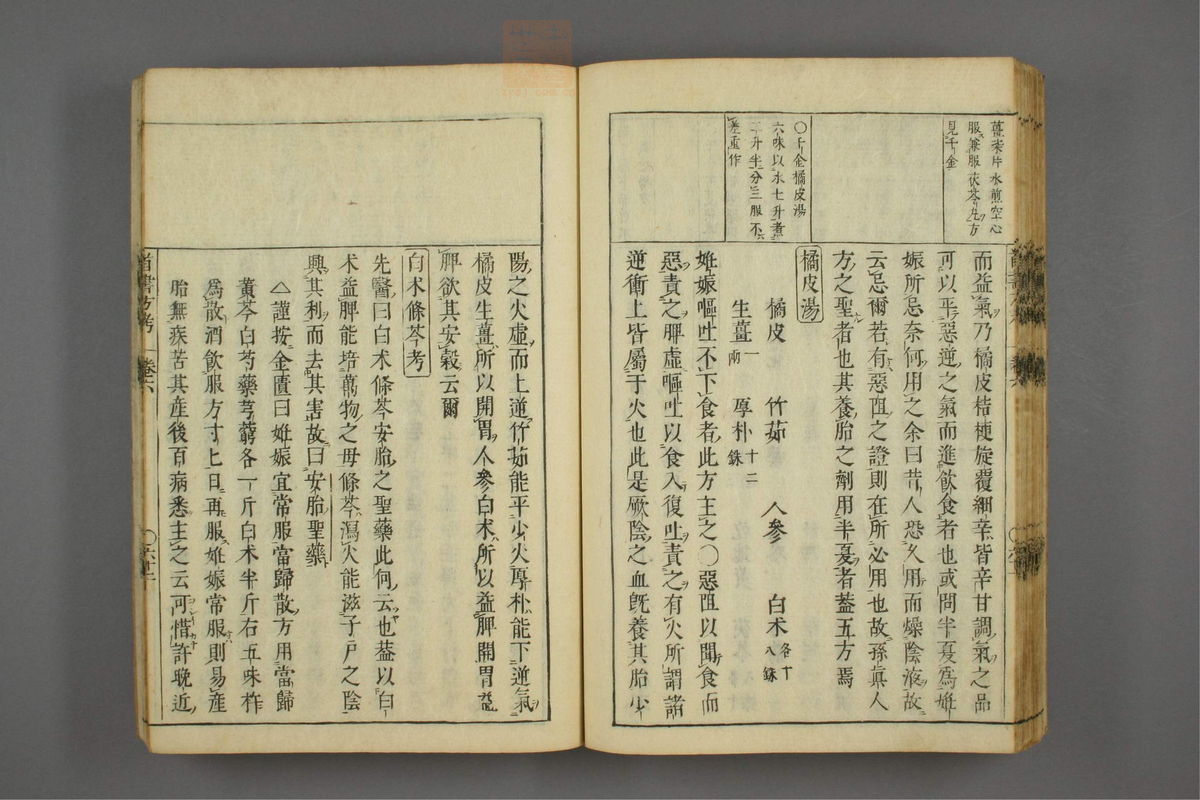 薑棗片水煎空心
服兼服茯苓丸方
見千金
〇千金橘皮湯
六味以水七升煮
二升半分三服不
差重作
而益氣乃橘皮桔梗旋覆細辛皆辛甘調氣之品
可以平惡逆之氣而進飲食者也或問半夏爲姙
娠所忌奈何用之余曰昔人恐久用而燥陰液故
云忌爾若有惡阻之證則在所必用也故孫眞人
方之聖者也其養胎之劑用半夏者蓋五方焉
橘皮湯
橘皮 竹茹 人參 白朮各十八銖
生薑一兩 厚朴十二銖
姙娠嘔吐不下食者此方主之〇惡阻以聞食而
惡責之脾虛嘔吐以食入復吐責之有火所謂諸
逆衝上皆屬于火也此是厥陰之血旣養其胎少
陽之火虛而上逆竹茹能平少火厚朴能下逆氣
橘皮生薑所以開胃人參白朮所以益脾開胃益
脾欲其安穀云爾
白朮條芩考
先醫曰白朮條芩安胎之聖藥此何云也蓋以白
朮益脾能培萬物之母條芩瀉火能滋子戸之陰
興其利而去其害故曰安胎聖藥
△謹按金匱曰姙娠宜常服當歸散方用當歸
黄芩白芍藥芎藭各一斤白朮半斤右五味杵
爲散酒飲服方寸匕日再服姙娠常服則易產
胎無疾苦其產後百病悉主之云可惜許晚近
卷六